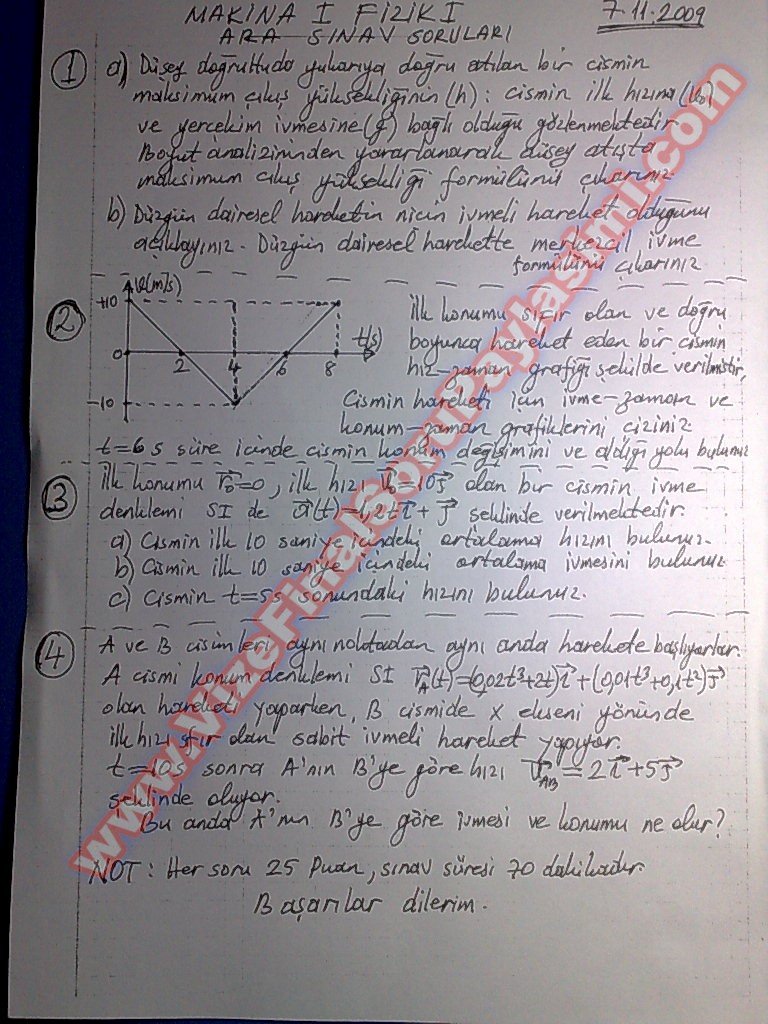 MAKİNA I FİZİK I
7.11.2009
ARA SINAV SORULARI
1 a) Düşey doğrultuda yukarıya doğru atılan bir cismin
maksimum çıkış yüksekliğinin (h): cismin ilk hızına (V₀)
ve yerçekim ivmesine (g) bağlı olduğu gözlenmektedir.
Boyut analizininden yararlanarak düşey atışta
maksimum çıkış yüksekliği formülünü çıkarınız.
b) Düzgün dairesel hareketin niçin ivmeli hareket olduğunu
açıklayınız. Düzgün dairesel harekette merkezcil ivme
formülünü çıkarınız
2
v(m/s)
+10
0
-10
2 4 6 8
t(s)
İlk konumu sıfır olan ve doğru
boyunca hareket eden bir cismin
hız-zaman grafiği şekilde verilmiştir.
Cismin hareketi için ivme-zaman ve
konum-zaman grafiklerini çiziniz.
t=6 s süre içinde cismin konum değişimini ve aldığı yolu bulunuz
3 İlk konumu r⃗₀=0, ilk hızı v⃗₀=10j⃗ olan bir cismin ivme
denklemi SI de a⃗(t)=1,2t i⃗ + j⃗ şeklinde verilmektedir.
a) Cismin ilk 10 saniye içindeki ortalama hızını bulunuz.
b) Cismin ilk 10 saniye içindeki ortalama ivmesini bulunuz
c) Cismin t=5s sonundaki hızını bulunuz.
4 A ve B cisimleri aynı noktadan aynı anda harekete başlıyorlar.
A cismi konum denklemi SI r⃗A(t)=(0,02t³+2t)i⃗+(0,01t³+0,1t²)j⃗
olan hareketi yaparken, B cismide x ekseni yönünde
ilk hızı sıfır olan sabit ivmeli hareket yapıyor.
t=10s sonra A'nın B'ye göre hızı v⃗AB = 2i⃗+5j⃗
şeklinde oluyor.
Bu anda A'nın B'ye göre ivmesi ve konumu ne olur?
NOT: Her soru 25 Puan, sınav süresi 70 dakikadır.
Başarılar dilerim.
www.VizeFinalSoruPaylasimi.com